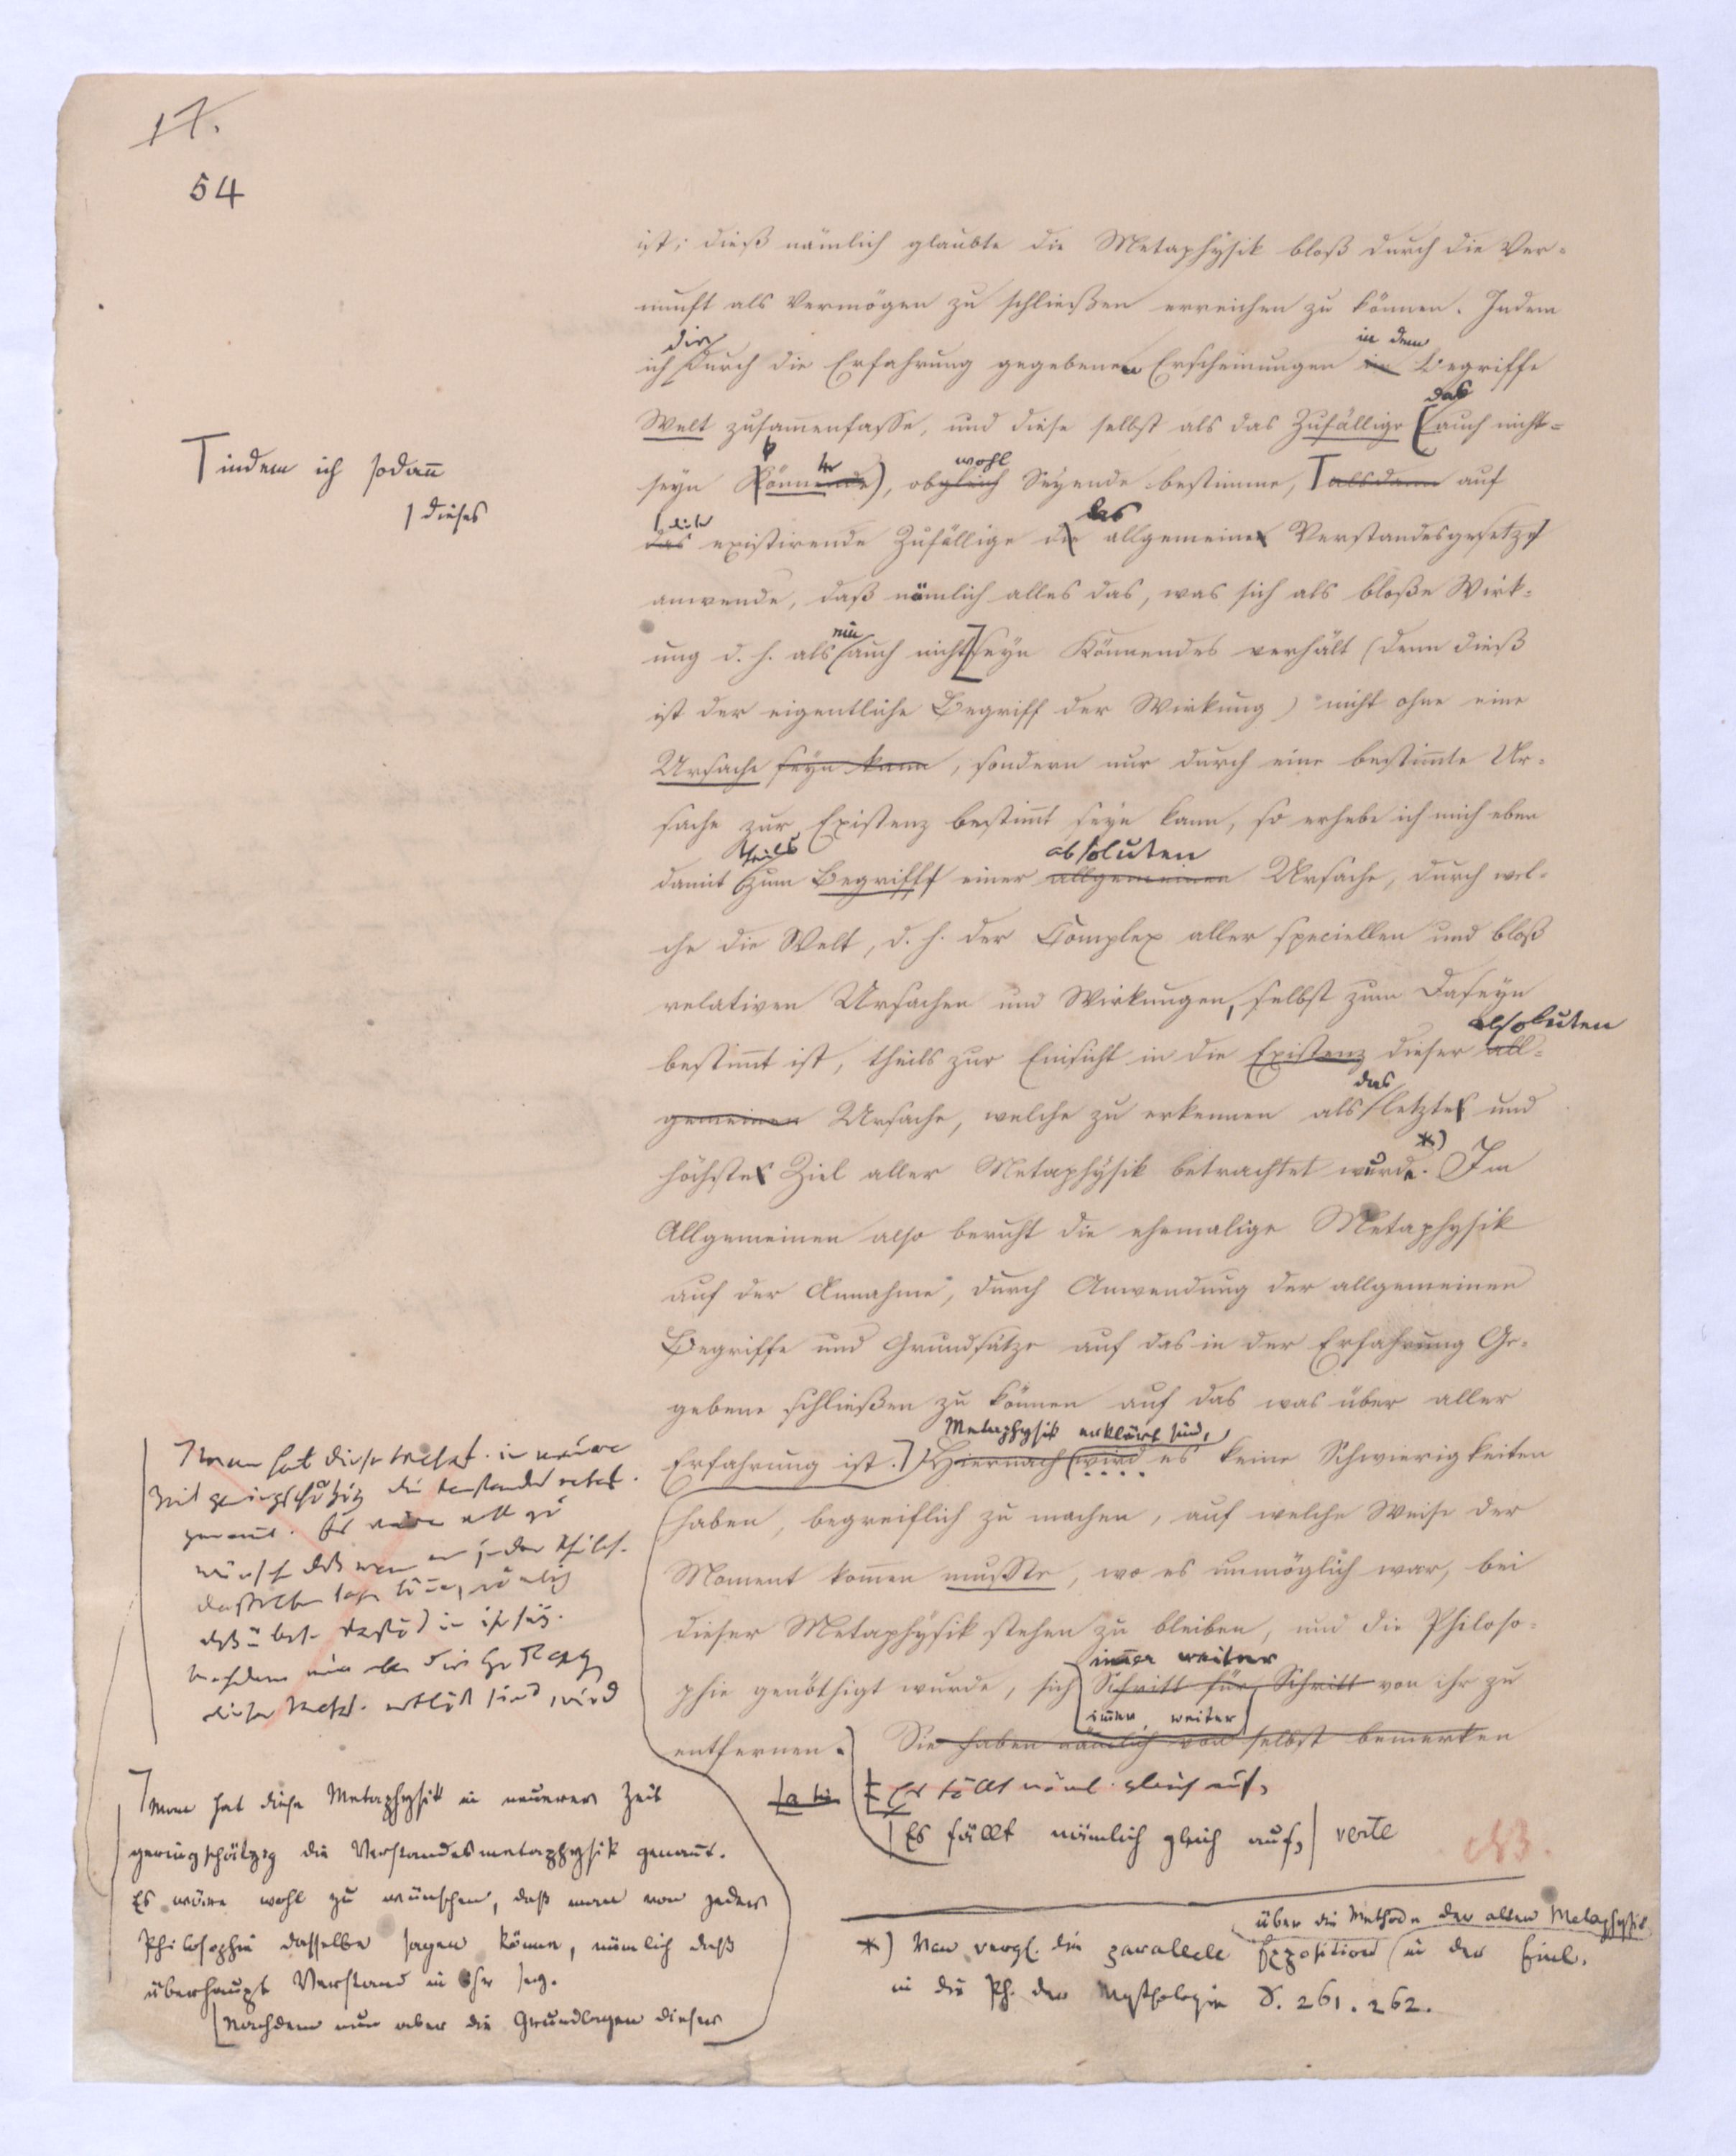 17.
54
ist; dieß nämlich glaubte die Metaphysik bloß durch die Ver-
nunft als Vermögen zu schließen erreichen zu können. Indem
die in dem
ich durch die Erfahrung gegebenen Erscheinungen im Begriffe
das
Welt zusam̄enfasse, und diese selbst als das Zufällige (auch nicht-
wohl
seyn Könnende), obgleich Seyende bestimme, alsdann auf
indem ich sodan̄
dieses
das
das existirende Zufällige die allgemeinen Verstandesgesetze
anwende, daß nämlich alles das, was sich als bloße Wirk-
nur
ung d. h. als auch nicht seyn Könnendes verhält (denn dieß
ist der eigentliche Begriff der Wirkung) nicht ohne eine
Ursache seyn kann, sondern nur durch eine bestim̄te Ur-
sache zur Existenz bestim̄t seyn kann, so erhebe ich mich eben
theils absoluten
damit zum Begriff einer allgemeinen Ursache, durch wel-
che die Welt, d. h. der Complex aller speciellen und bloß
relativen Ursachen und Wirkungen, selbst zum Daseyn
absoluten
bestim̄t ist, theils zur Einsicht in die Existenz dieser all-
das
gemeinen Ursache, welche zu erkennen als letztes und
*)
höchstes Ziel aller Metaphysik betrachtet wurde. Im
Allgemeinen also beruht die ehemalige Metaphysik
auf der Annahme, durch Anwendung der allgemeinen
Begriffe und Grundsätze auf das in der Erfahrung Ge-
gebene schließen zu können auf das was über aller
Metaphysik erklärt sind,
Erfahrung ist. Hiernach wird es keine Schwierigkeiten
haben, begreiflich zu machen, auf welche Weise der
Moment kom̄en mußte, wo es unmöglich war, bei
dieser Metaphysik stehen zu bleiben, und die Philoso-
im̄er weiter
phie genöthigt wurde, sich Schritt für Schritt von ihr zu
im̄er weiter
entfernen. Sie haben nämlich von selbst bemerken
Es fällt näml. gleich auf,
Es fällt nämlich gleich auf, verte
NB.
Man hat diese Metaph. in neuerer
Zeit geringschätzig die Verstandes metaph.
genan̄t. Es wäre
wünsch. daß man von jeder Philos.
dasselbe sagen kön̄e, nämlich
daß überh. Verstand in ihr sey.
Nachdem nun aber die Grundlagen
dieser Metaph. erklärt sind, wird
Man hat diese Metaphysik in neuerer Zeit
geringschätzig die Verstandesmetaphysik genan̄t.
Es wäre wohl zu wünschen, daß man von jeder
Philosophie dasselbe sagen könne, nämlich daß
überhaupt Verstand in ihr sey.
Nachdem nun aber die Grundlagen dieser
über die Methode der alten Metaphysik
*) Man vergl. die parallele Exposition in der Einl.
in die Ph. der Mythologie S. 261. 262.